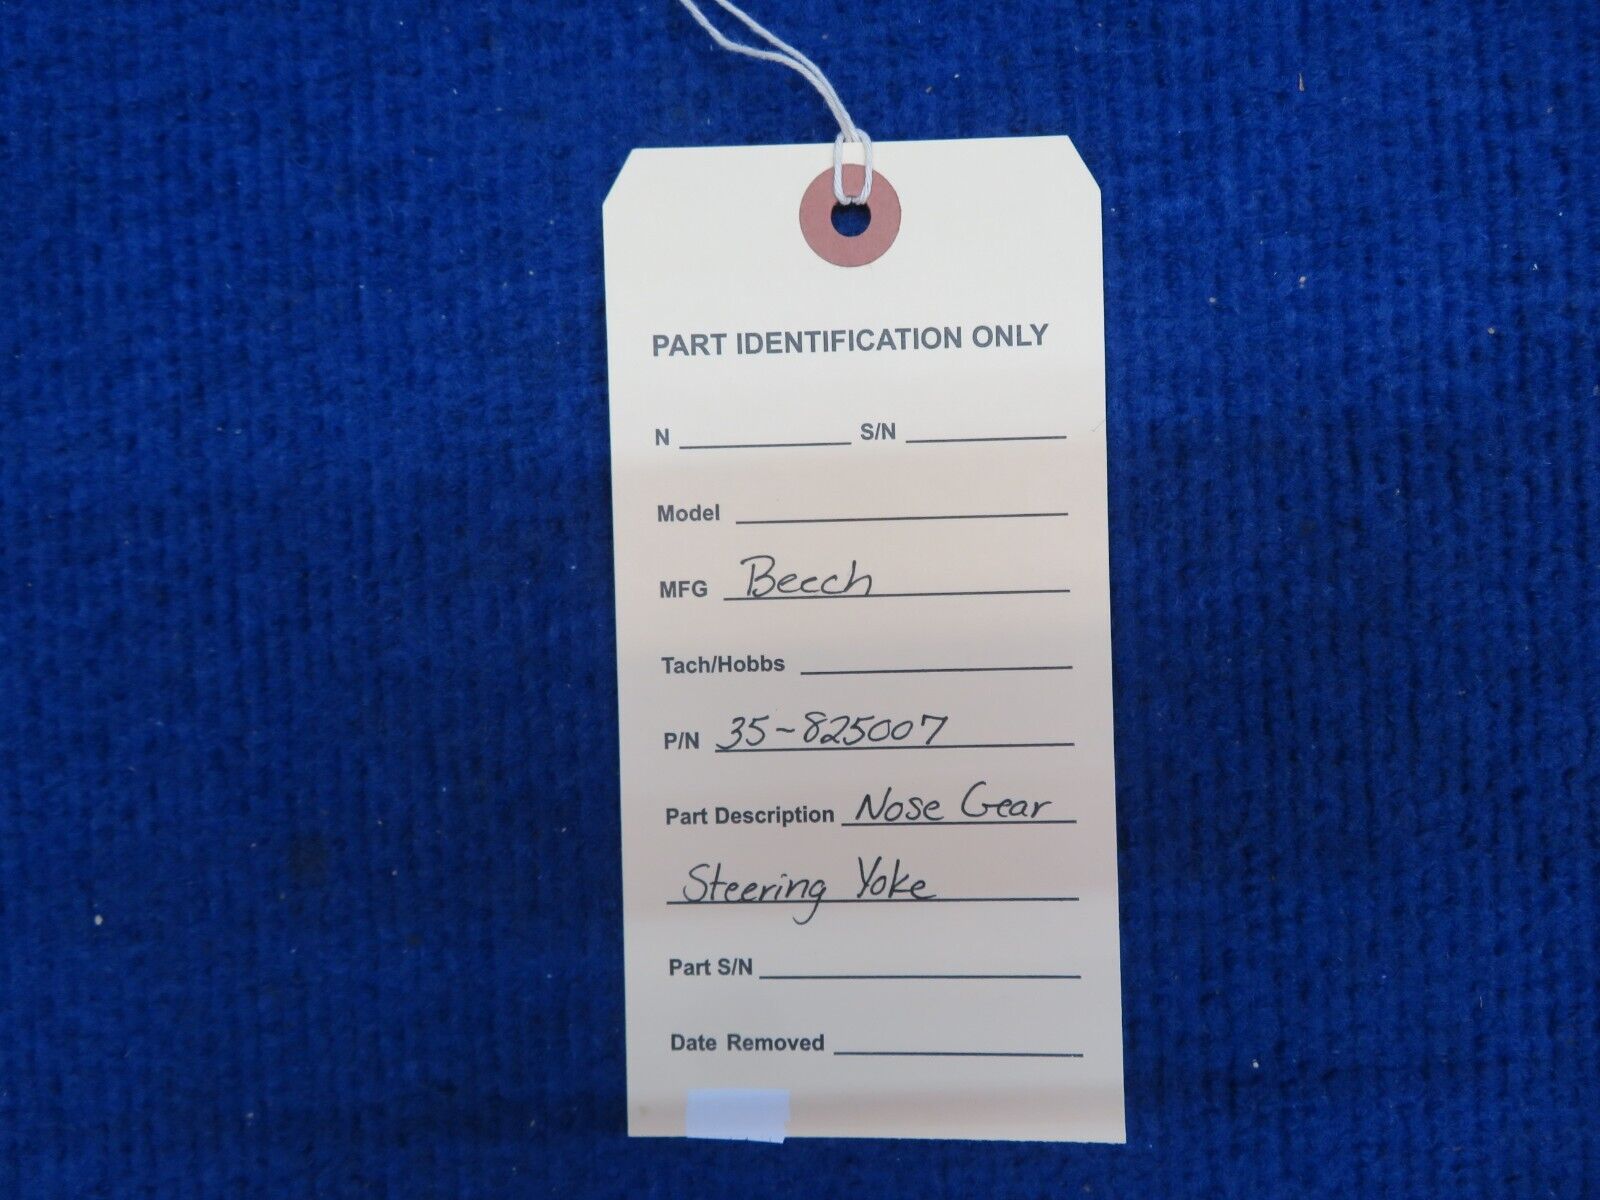 PART IDENTIFICATION ONLY
N S/N
Model
MFG Beech
Tach/Hobbs
P/N 35-825007
Part Description Nose Gear
Steering Yoke
Part S/N
Date Removed